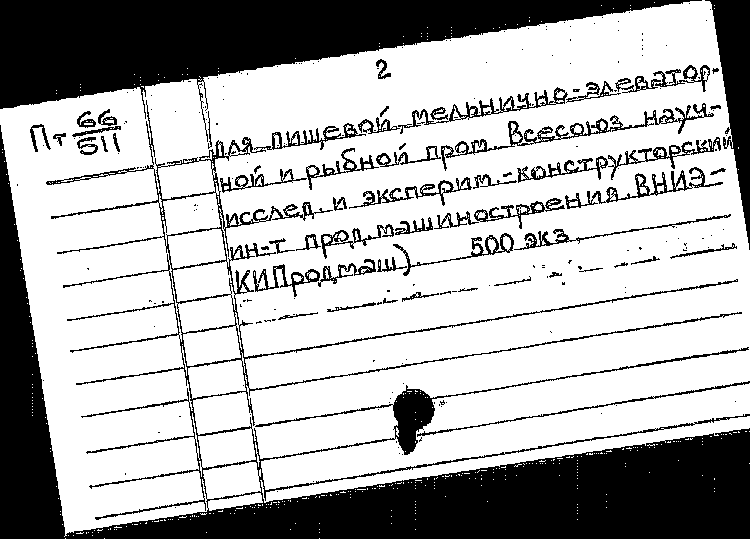 2
Пт 66/511
для пищевой, мельнично-элеватор-
ной и рыбной пром. Всесоюз. науч.-
исслед. и эксперим.-конструкторский
ин-т прод. машиностроения. ВНИЭ-
КИПродмаш). 500 экз.